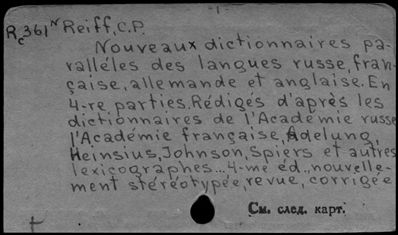 - 1 -
Rc361 N Reiff, C.P.
Nouveaux dictionnaires pa-
ralléles des langues russe, fran-
çaise, allemande et anglaise. En
4-re parties. Rédiges d'après les
dictionnaires de l'Académie russe
l'Académie française, Adelung,
Heinsius, Johnson, Spiers et autres
lexicographes... 4-me éd., nouvelle-
ment stéréotypée, revue, corrigée
См. след. карт.